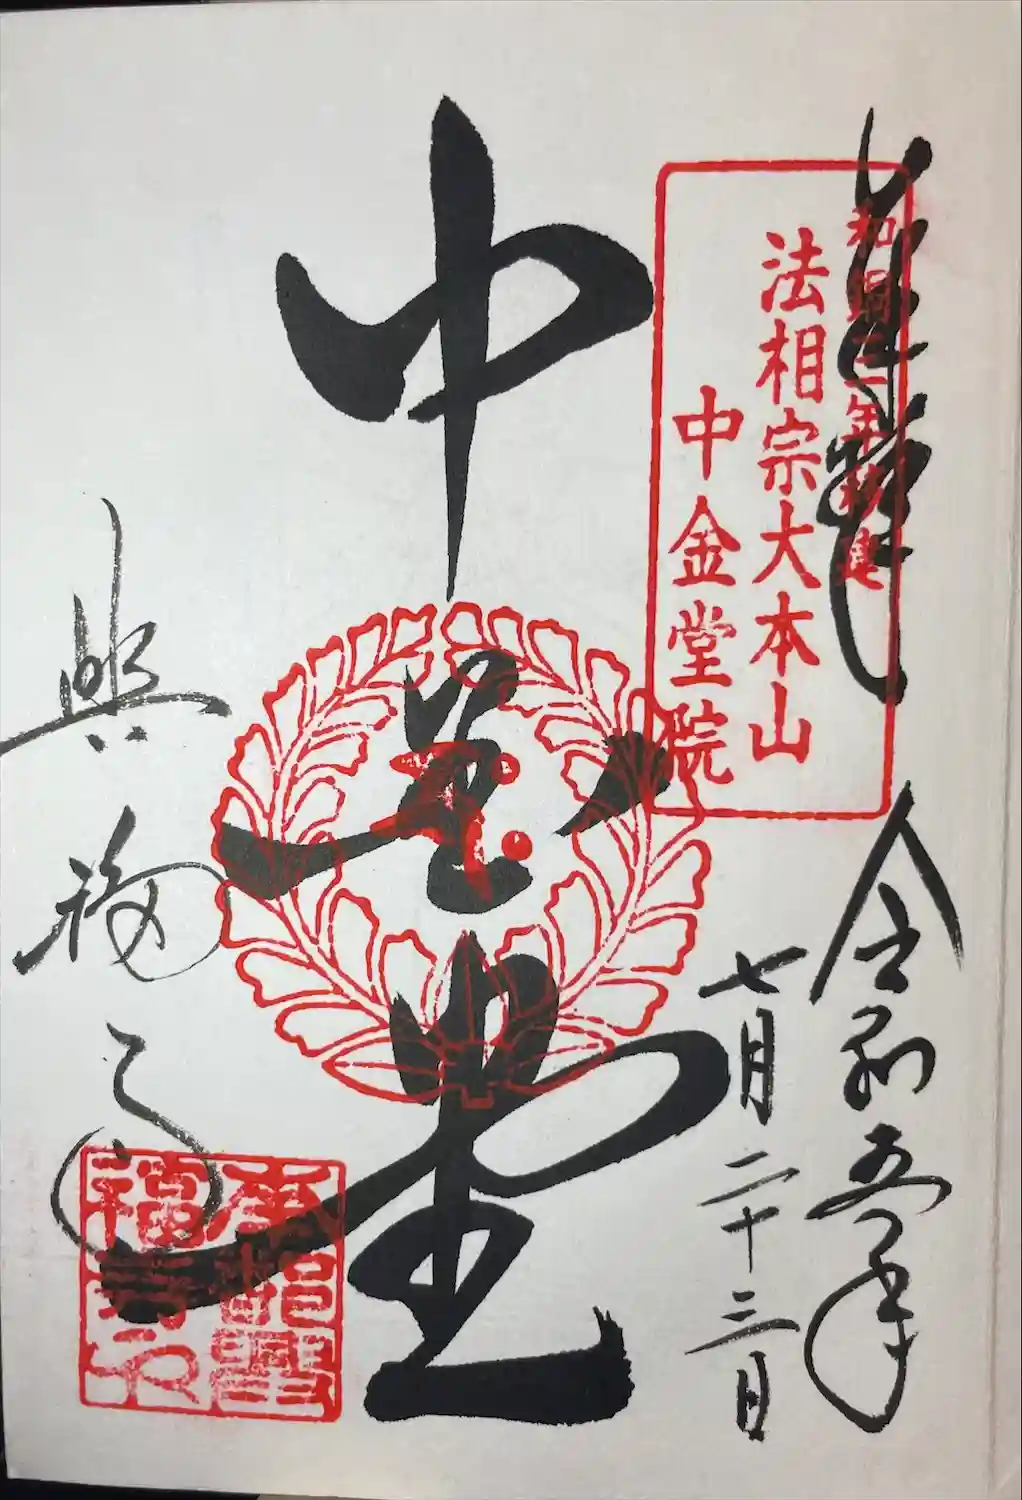 和銅三年創建
法相宗大本山
中金堂院
令和五年
七月二十三日
中金堂
興福寺